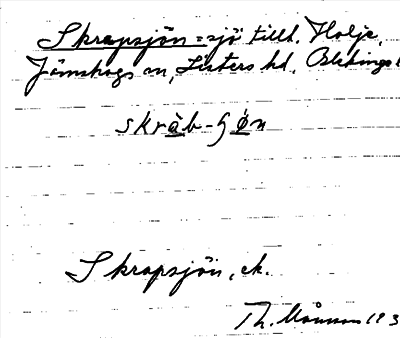 Skrapsjön = sjö tillt. Holje,
Jämshogs sn, Listers hd, Blekinge l
skràb-ʃø̀n
Skrapsjön, ek.
Th. Månsson 193